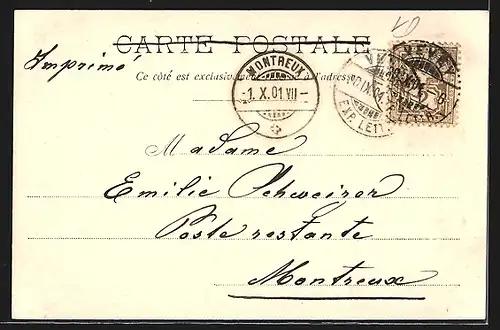 CARTE POSTALE
Imprimé
Ce côté est exclusivement à l'adresse
MONTREUX
-1. X. 01. VII-
VEVEY
EXP. LETT.
Madame
Emilie Schweizer
Poste restante
Montreux